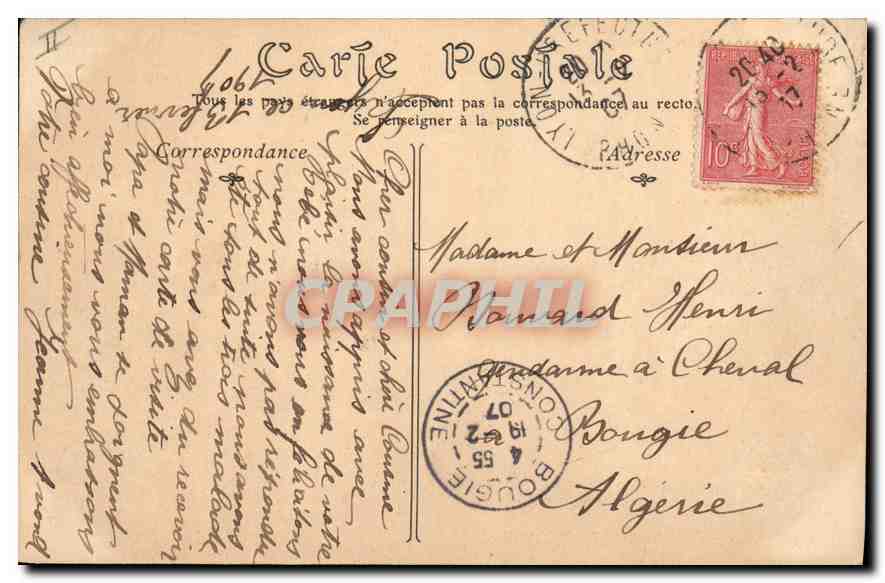 II
Carte Postale
Tous les pays étrangers n'acceptent pas la correspondance au recto.
Se renseigner à la poste.
Correspondance
Adresse
Lyon le 13 février
1907
Cher cousin et chère Cousine
Nous avons appris avec
plaisir la naissance de votre
Bébé nous vous en félicitons
nous n'avons pas répondu
tout de suite nous avons
été tous les trois malade
mais vous avez du recevoir
notre carte de visite
Papa et Maman se joignent
a moi nous vous embrassons
bien affectueusement
Votre cousine Jeanne
Madame et Monsieur
Henri
Gendarme à Cheval
à
Bougie
Algérie
LYON PREFECTURE
20 40
13 -2
07
10
BOUGIE
CONSTANTINE
4 55
19 -2
07
CPAPHIL